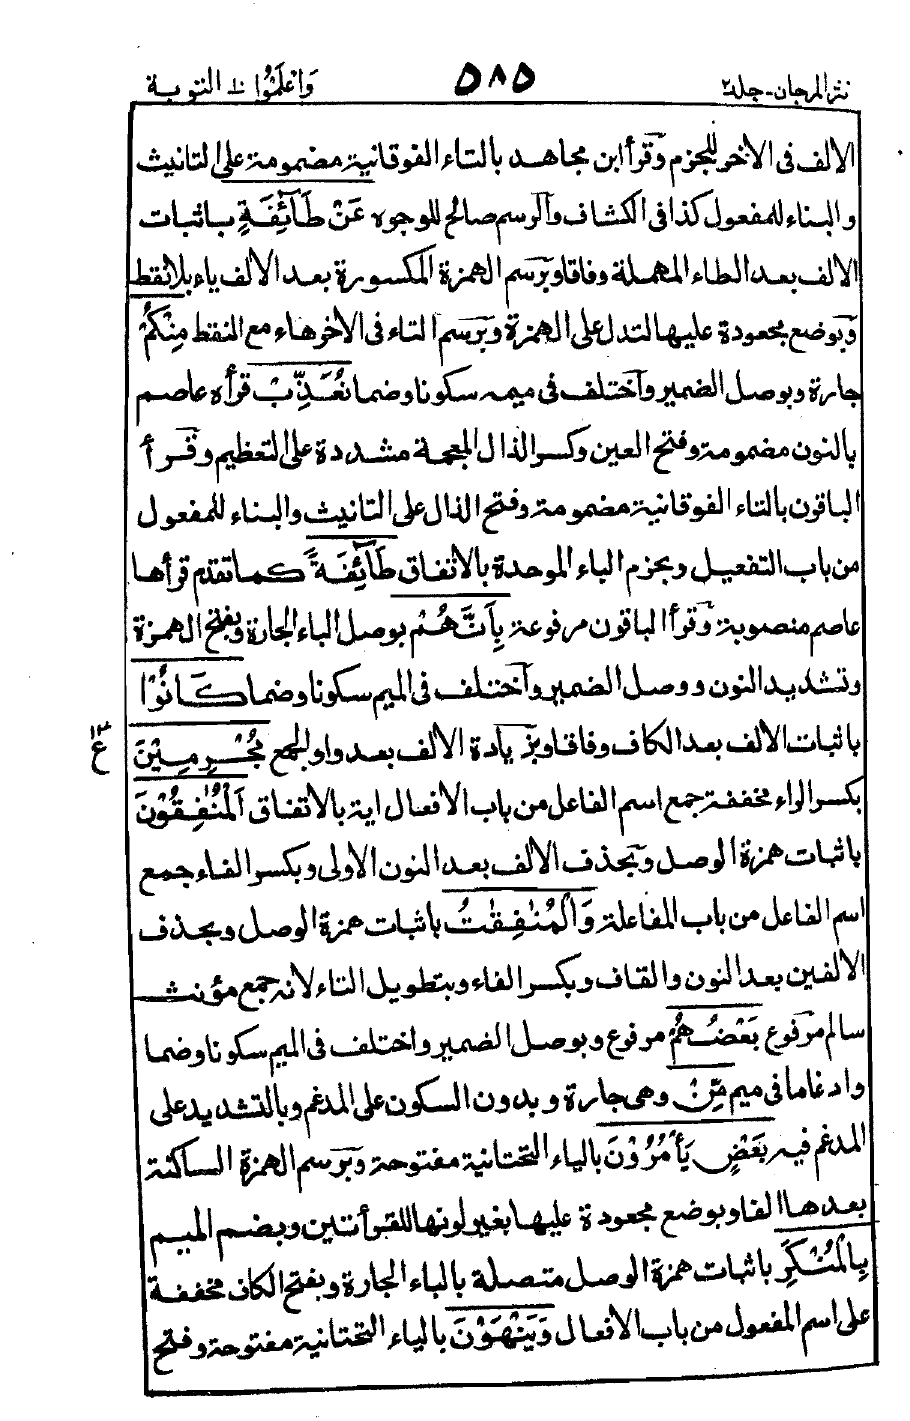 نثر المرجان - جلد ٢ ٥٨٥ وَاعْلَمُوٓا ١٠ التوبة
الالف فى الآخر للجزم وقرأ ابن مجاهد بالتاء الفوقانية مضمومة على التانيث
والبناء للمفعول كذا فى الكشاف والرسم صالح للوجوه عَنْ طَآئِفَةٍ باثبات
الالف بعد الطاء المهملة وفاقا وبرسم الهمزة المكسورة بعد الالف ياء بلا نقط
وبوضع مجعودة عليها لتدل على الهمزة وبرسم التاء فى الآخر هاء مع النقط مِنْكُمْ
جارة وبوصل الضمير واختلف فى ميمه سكونا وضما نُعَذِّبْ قرأه عاصم
بالنون مضمومة وفتح العين وكسر الذال المعجمة مشددة على التعظيم وقرأ
الباقون بالتاء الفوقانية مضمومة وفتح الذال على التانيث والبناء للمفعول
من باب التفعيل وبجزم الباء الموحدة بالاتفاق طَآئِفَةً كما تقدم قرأها
عاصم منصوبة وقرأ الباقون مرفوعة بِاَنَّهُمْ بوصل الباء الجارة وبفتح الهمزة
وتشديد النون ووصل الضمير واختلف فى الميم سكونا وضما كَانُوْا
باثبات الالف بعد الكاف وفاقا وبزيادة الالف بعد واو الجمع مُجْرِمِيْنَ
بكسر الراء مخففة جمع اسم الفاعل من باب الافعال اية بالاتفاق اَلْمُنٰفِقُوْنَ
باثبات همزة الوصل وبحذف الالف بعد النون الاولى وبكسر الفاء جمع
اسم الفاعل من باب المفاعلة وَالْمُنٰفِقٰتُ باثبات همزة الوصل وبحذف
الالفين بعد النون والقاف وبكسر الفاء وبتطويل التاء لانه جمع مؤنث
سالم مرفوع بَعْضُهُمْ مرفوع وبوصل الضمير واختلف فى الميم سكونا وضما
وادغاما فى ميم مِّنْ وهى جارة وبدون السكون على المدغم وبالتشديد على
المدغم فيه بَعْضٍ يَأْمُرُوْنَ بالياء التحتانية مفتوحة وبرسم الهمزة الساكنة
بعدها الفا وبوضع مجعودة عليها بغير لونها للقرأتين وبضم الميم
بِالْمُنْكَرِ باثبات همزة الوصل متصلة بالباء الجارة وبفتح الكاف مخففة
على اسم المفعول من باب الافعال وَيَنْهَوْنَ بالياء التحتانية مفتوحة وفتح